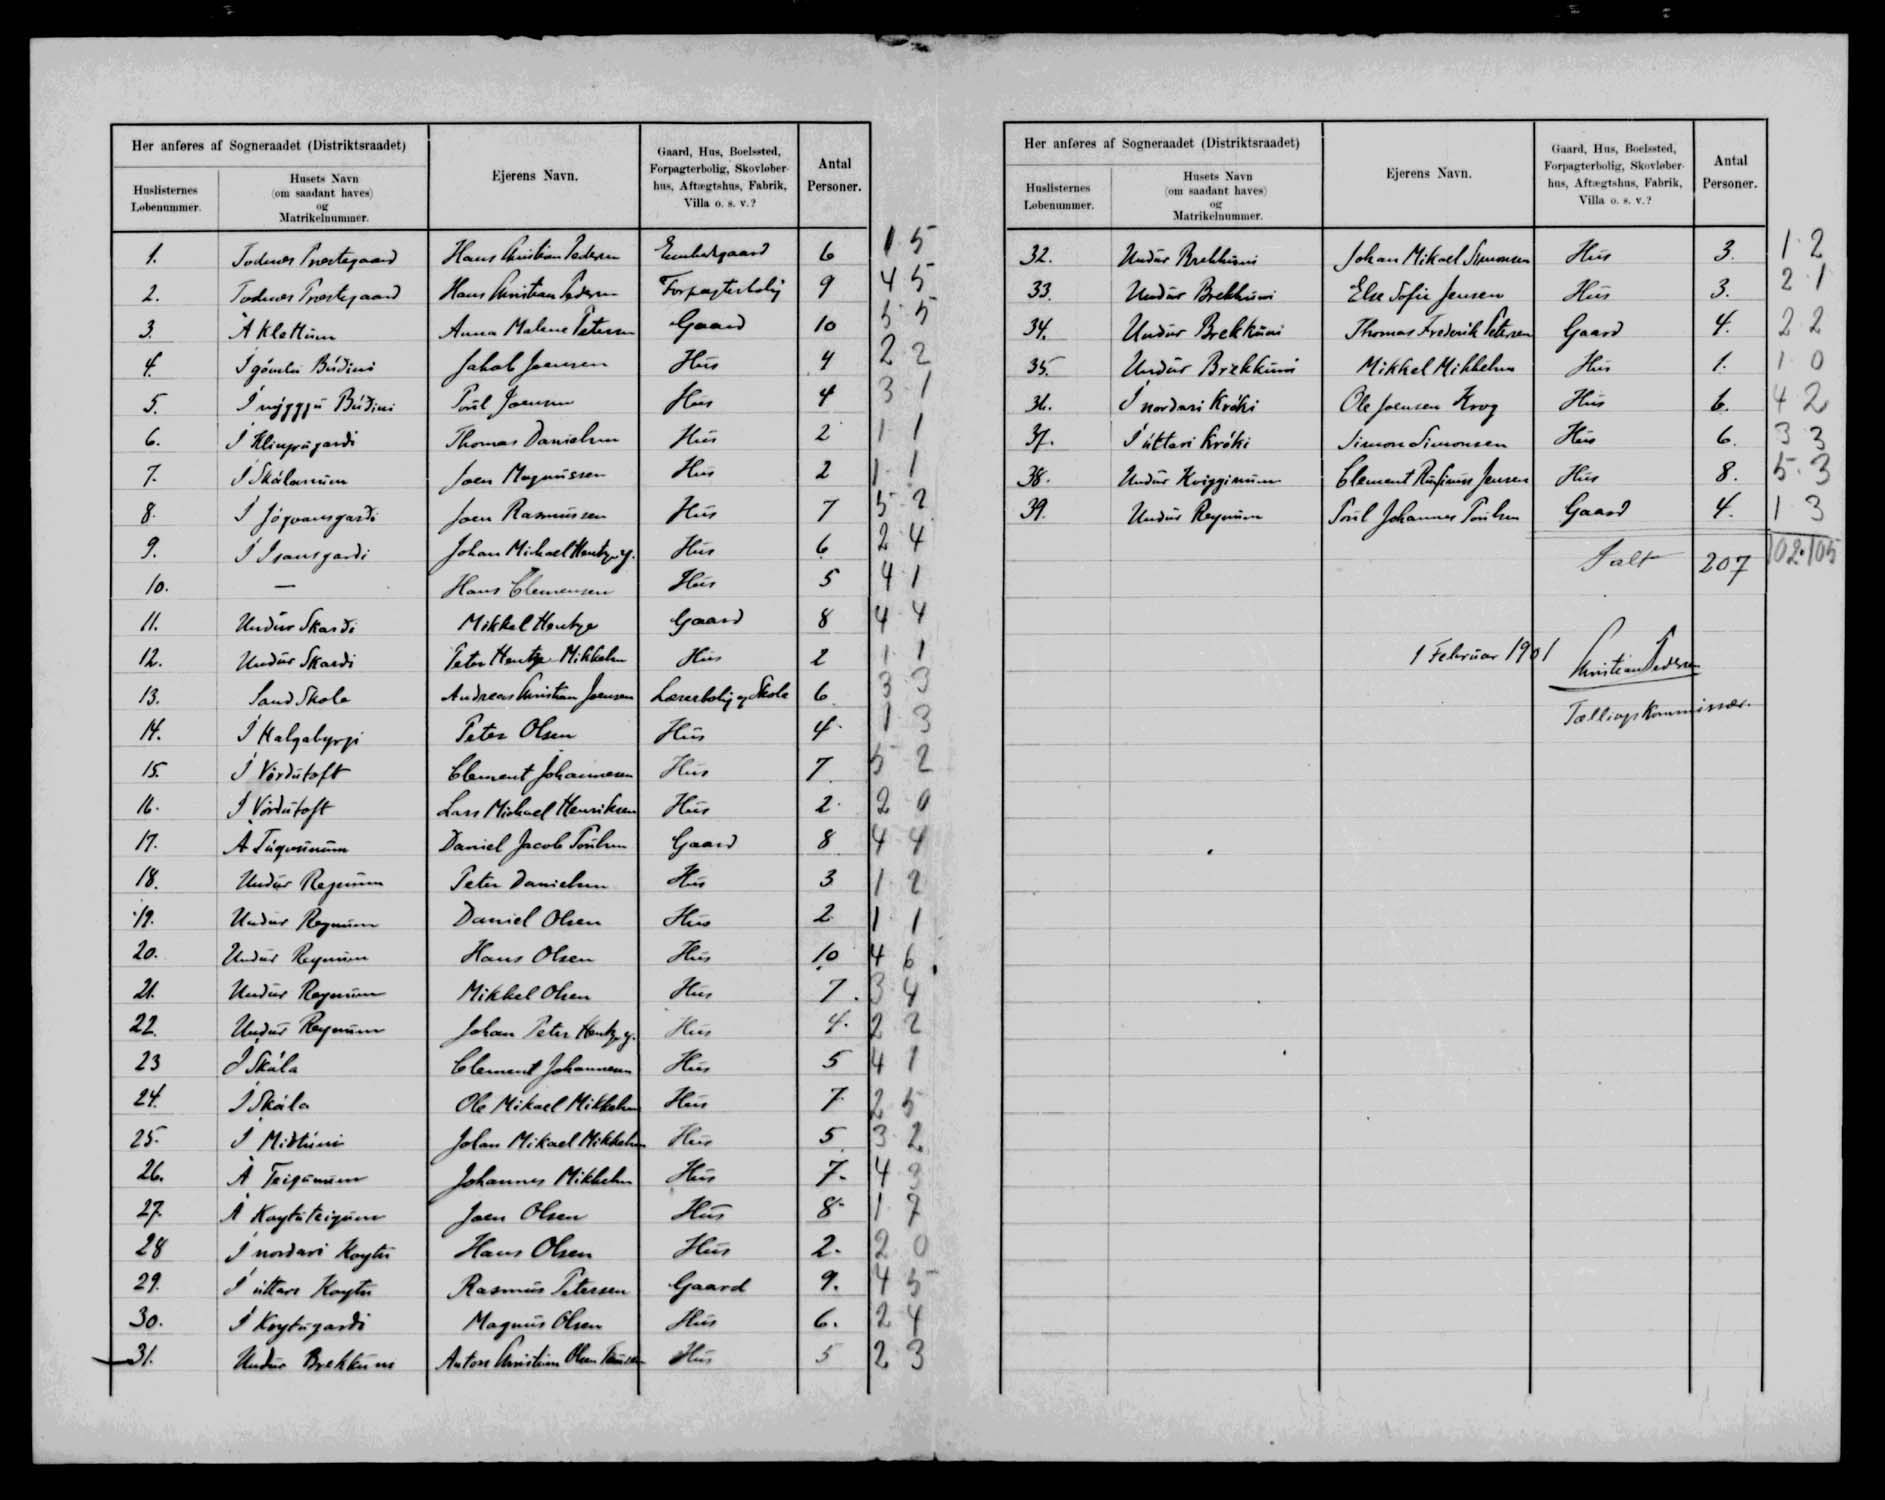 Her anføres af Sogneraadet (Distriktsraadet)
Huslisternes Løbenummer.
Husets Navn (om saadant haves) og Matrikelnummer.
Ejerens Navn.
Gaard, Hus, Boelssted, Forpagterbolig, Skovløberhus, Aftægtshus, Fabrik, Villa o. s. v.?
Antal Personer.
1. Todnes Præstegaard Hans Christian Pedersen Embedsgaard 6 1 5
2. Todnes Præstegaard Hans Christian Pedersen Forpagterbolig 9 4 5
3. Á Klettum Anna Malene Petersen Gaard 10 5 5
4. Í gómlu Búðini Jakob Joensen Hus 4 2 2
5. Í nýggju Búðini Poul Joensen Hus 4 3 1
6. Thomas Danielsen Hus 2 1 1
7. Í Skálanum Joen Magnussen Hus 2 1 1
8. Í Jógvansgardi Joen Rasmussen Hus 7 5 2
9. Í Isansgardi Johan Michael Hentze Hus 6 2 4
10. — Hans Clemensen Hus 5 4 1
11. Undur Skarði Mikkel Hentze Gaard 8 4 4
12. Undur Skardi Peter Hentze Mikkelsen Hus 2 1 1
13. Sand Skole Andreas Christian Joensen Lærerbolig og Skole 6 3 3
14. Í Halgabyrgi Peter Olsen Hus 4 1 3
15. Í Vørdutoft Clement Johannesen Hus 7 5 2
16. Í Vørdutoft Lars Michael Henriksen Hus 2 2 0
17. Á Túgvunum Daniel Jacob Poulsen Gaard 8 4 4
18. Undur Reynum Peter Danielsen Hus 3 1 2
19. Undur Reynum Daniel Olsen Hus 2 1 1
20. Undur Reynum Hans Olsen Hus 10 4 6
21. Undur Reynum Mikkel Olsen Hus 7 3 4
22. Undur Reynum Johan Peter Hentze Hus 4. 2 2
23 Í Skála Clement Johannesen Hus 5 4 1
24. Í Skála Ole Mikael Mikkelsen Hus 7 2 5
25. Í Miðtúni Johan Mikael Mikkelsen Hus 5 3 2
26. Á Teigunum Johannes Mikkelsen Hus 7. 4 3
27. Á Koytuteigum Joen Olsen Hus 8 1 7
28 Í nordari Koytu Hans Olsen Hus 2. 2 0
29. Í úttari Koytu Rasmus Petersen Gaard 9. 4 5
30. Í Koytugardi Magnus Olsen Hus 6. 2 4
31. Undur Brekkuni Anton Christian Olsen Hus 5 2 3
Her anføres af Sogneraadet (Distriktsraadet)
Huslisternes Løbenummer.
Husets Navn (om saadant haves) og Matrikelnummer.
Ejerens Navn.
Gaard, Hus, Boelssted, Forpagterbolig, Skovløberhus, Aftægtshus, Fabrik, Villa o. s. v.?
Antal Personer.
32. Undur Brekkuni Johan Mikael Simonsen Hus 3. 1 2
33. Undur Brekkuni Else Sofie Jensen Hus 3. 2 1
34. Undur Brekkuni Thomas Frederik Petersen Gaard 4. 2 2
35. Undur Brekkuni Mikkel Mikkelsen Hus 1. 1 0
36. Í nordari Króki Ole Joensen Krog Hus 6. 4 2
37. Í úttari Króki Simon Simonsen Hus 6. 3 3
38. Undur Kviggjunum Clement Rasmus Jensen Hus 8. 5 3
39. Undur Reynum Poul Johannes Poulsen Gaard 4. 1 3
Ialt 207 102 105
1 Februar 1901 Christian Pedersen
Tællingskommissær.